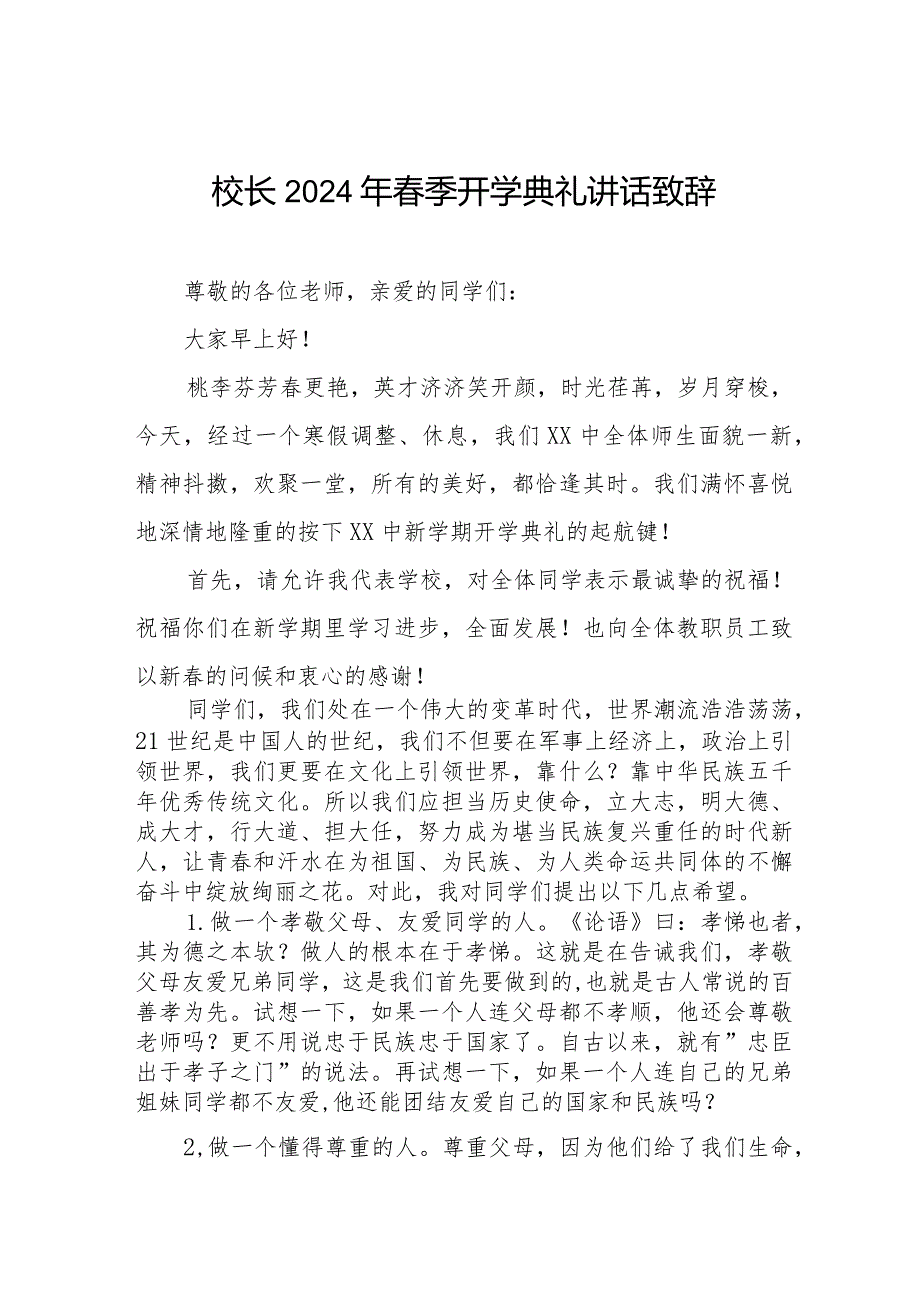 校长2024年春季开学典礼讲话致辞
尊敬的各位老师，亲爱的同学们：
大家早上好！
桃李芬芳春更艳，英才济济笑开颜，时光荏苒，岁月穿梭，
今天，经过一个寒假调整、休息，我们XX中全体师生面貌一新，
精神抖擞，欢聚一堂，所有的美好，都恰逢其时。我们满怀喜悦
地深情地隆重的按下XX中新学期开学典礼的起航键！
首先，请允许我代表学校，对全体同学表示最诚挚的祝福！
祝福你们在新学期里学习进步，全面发展！也向全体教职员工致
以新春的问候和衷心的感谢！
同学们，我们处在一个伟大的变革时代，世界潮流浩浩荡荡，
21世纪是中国人的世纪，我们不但要在军事上经济上，政治上引
领世界，我们更要在文化上引领世界，靠什么？靠中华民族五千
年优秀传统文化。所以我们应担当历史使命，立大志，明大德、
成大才，行大道、担大任，努力成为堪当民族复兴重任的时代新
人，让青春和汗水在为祖国、为民族、为人类命运共同体的不懈
奋斗中绽放绚丽之花。对此，我对同学们提出以下几点希望。
1.做一个孝敬父母、友爱同学的人。《论语》曰：孝悌也者，
其为德之本欤？做人的根本在于孝悌。这就是在告诫我们，孝敬
父母友爱兄弟同学，这是我们首先要做到的,也就是古人常说的百
善孝为先。试想一下，如果一个人连父母都不孝顺，他还会尊敬
老师吗？更不用说忠于民族忠于国家了。自古以来，就有”忠臣
出于孝子之门”的说法。再试想一下，如果一个人连自己的兄弟
姐妹同学都不友爱,他还能团结友爱自己的国家和民族吗？
2,做一个懂得尊重的人。尊重父母，因为他们给了我们生命，